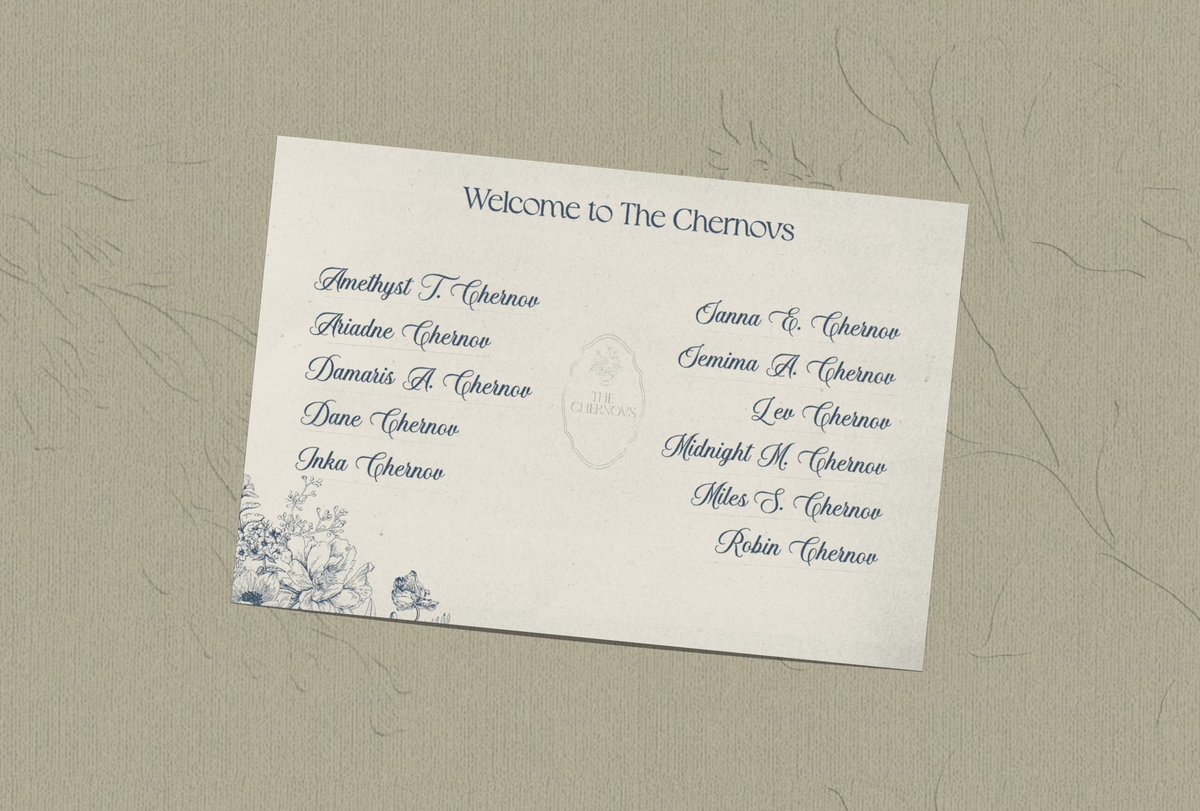 Welcome to The Chernovs
Amethyst T. Chernov
Ariadne Chernov
Damaris A. Chernov
Dane Chernov
Inka Chernov
THE
CHERNOVS
Janna E. Chernov
Jemima A. Chernov
Lev Chernov
Midnight M. Chernov
Miles S. Chernov
Robin Chernov